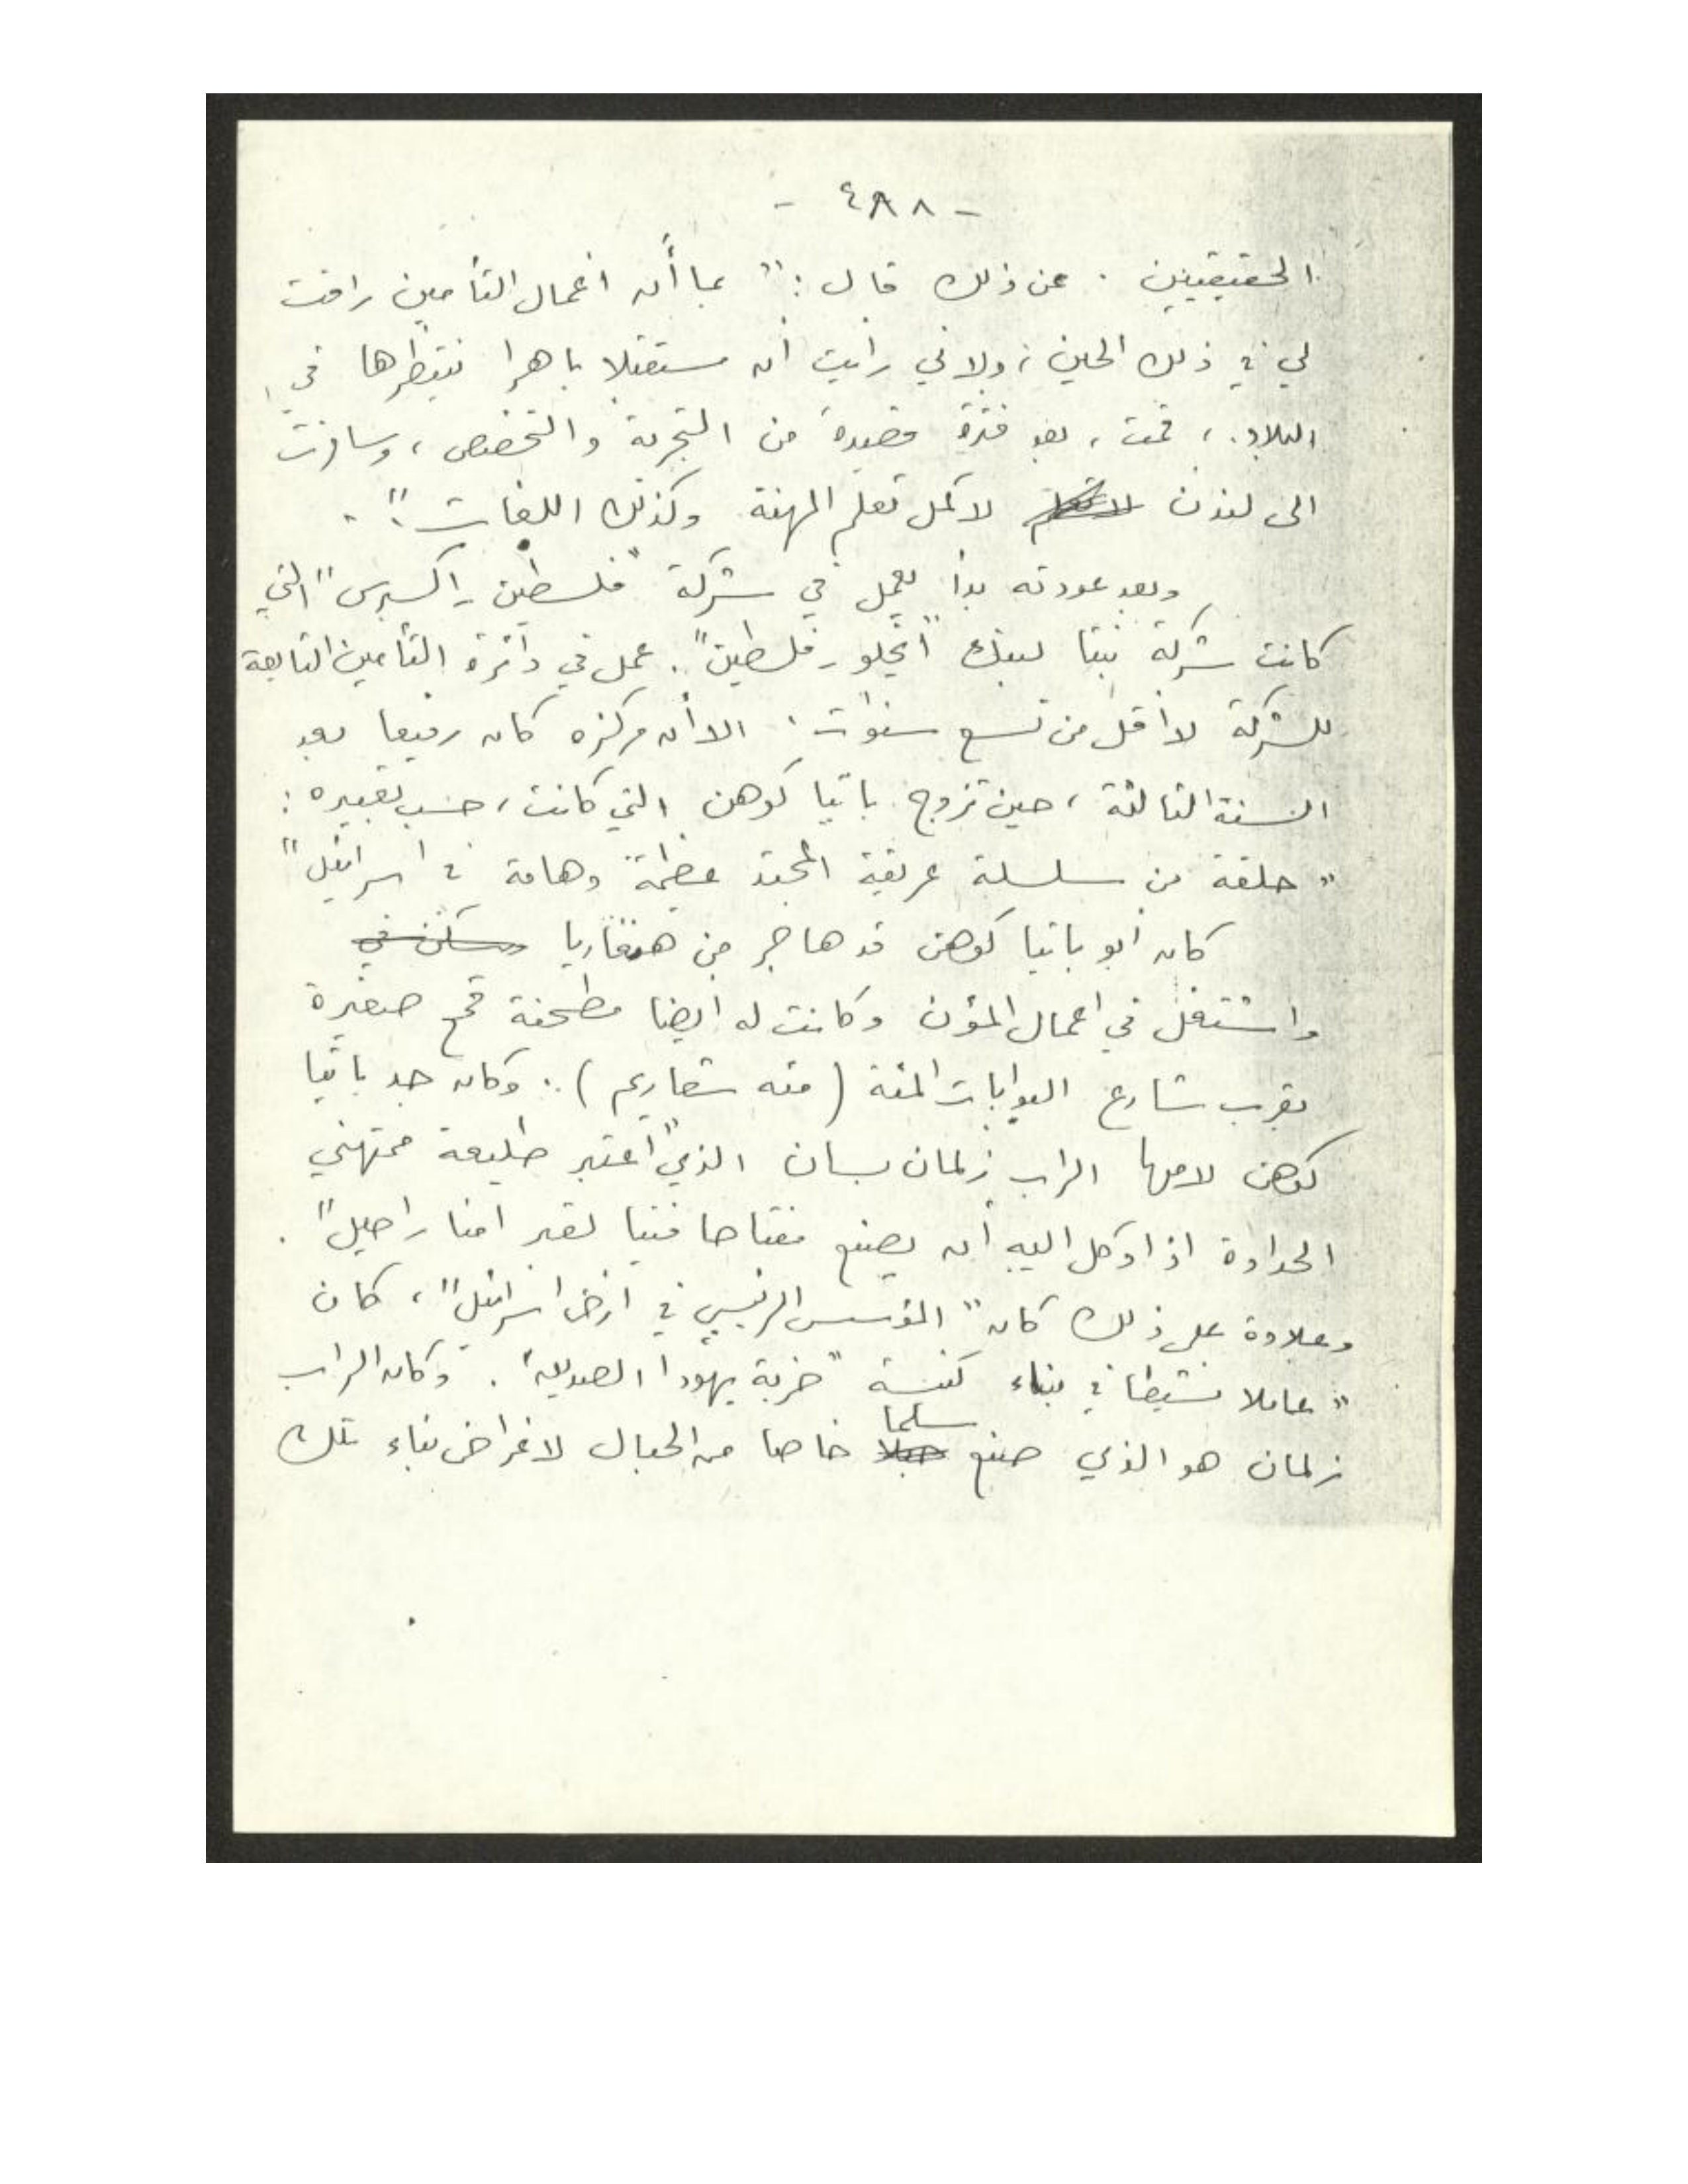 - ٤٨٨ -
الحقيقيين . عن ذلك قال : " بما أن اعمال التأمين راقت
لي في ذلك الحين ، ولاني رأيت أن مستقبلا باهرا ينتظرها في
البلاد ، قمت ، بعد فترة قصيرة من التجربة والتخصص ، وسافرت
الى لندن لاكمل تعلم المهنة وكذلك اللغات " .
وبعد عودته بدأ يعمل في شركة " فلسطين - اكسبرس " التي
كانت شركة بنتا لبنك " انجلو - فلسطين " . عمل في دائرة التأمين التابعة
للشركة لا أقل من تسع سنوات . الا أن مركزه كان رفيعا بعد
السنة الثالثة ، حين تزوج باتيا كوهن التي كانت ، حسب تعبيره :
" حلقة من سلسلة عريقة المحتد عظيمة وهامة في اسرائيل "
كان أبو باتيا كوهن قد هاجر من هنغاريا وسكن في
واشتغل في اعمال المؤن وكانت له ايضا مطحنة قمح صغيرة
بقرب شارع البوابات المئة ( مئه شعاريم ) . وكان جد باتيا
كوهن لامها الراب زلمان بسان الذي " اعتبر طليعة ممتهني
الحدادة اذ اوكل اليه أن يصنع مفتاحا فنيا لقبر امنا راحيل " .
وعلاوة على ذلك كان " المؤسس الرئيسي في ارض اسرائيل " ، كان
" عاملا نشيطا في بناء كنيسة " خربة يهودا الصديق " . وكان الراب
زلمان هو الذي صنع حبلا سلما خاصا من الحبال لاغراض بناء تلك